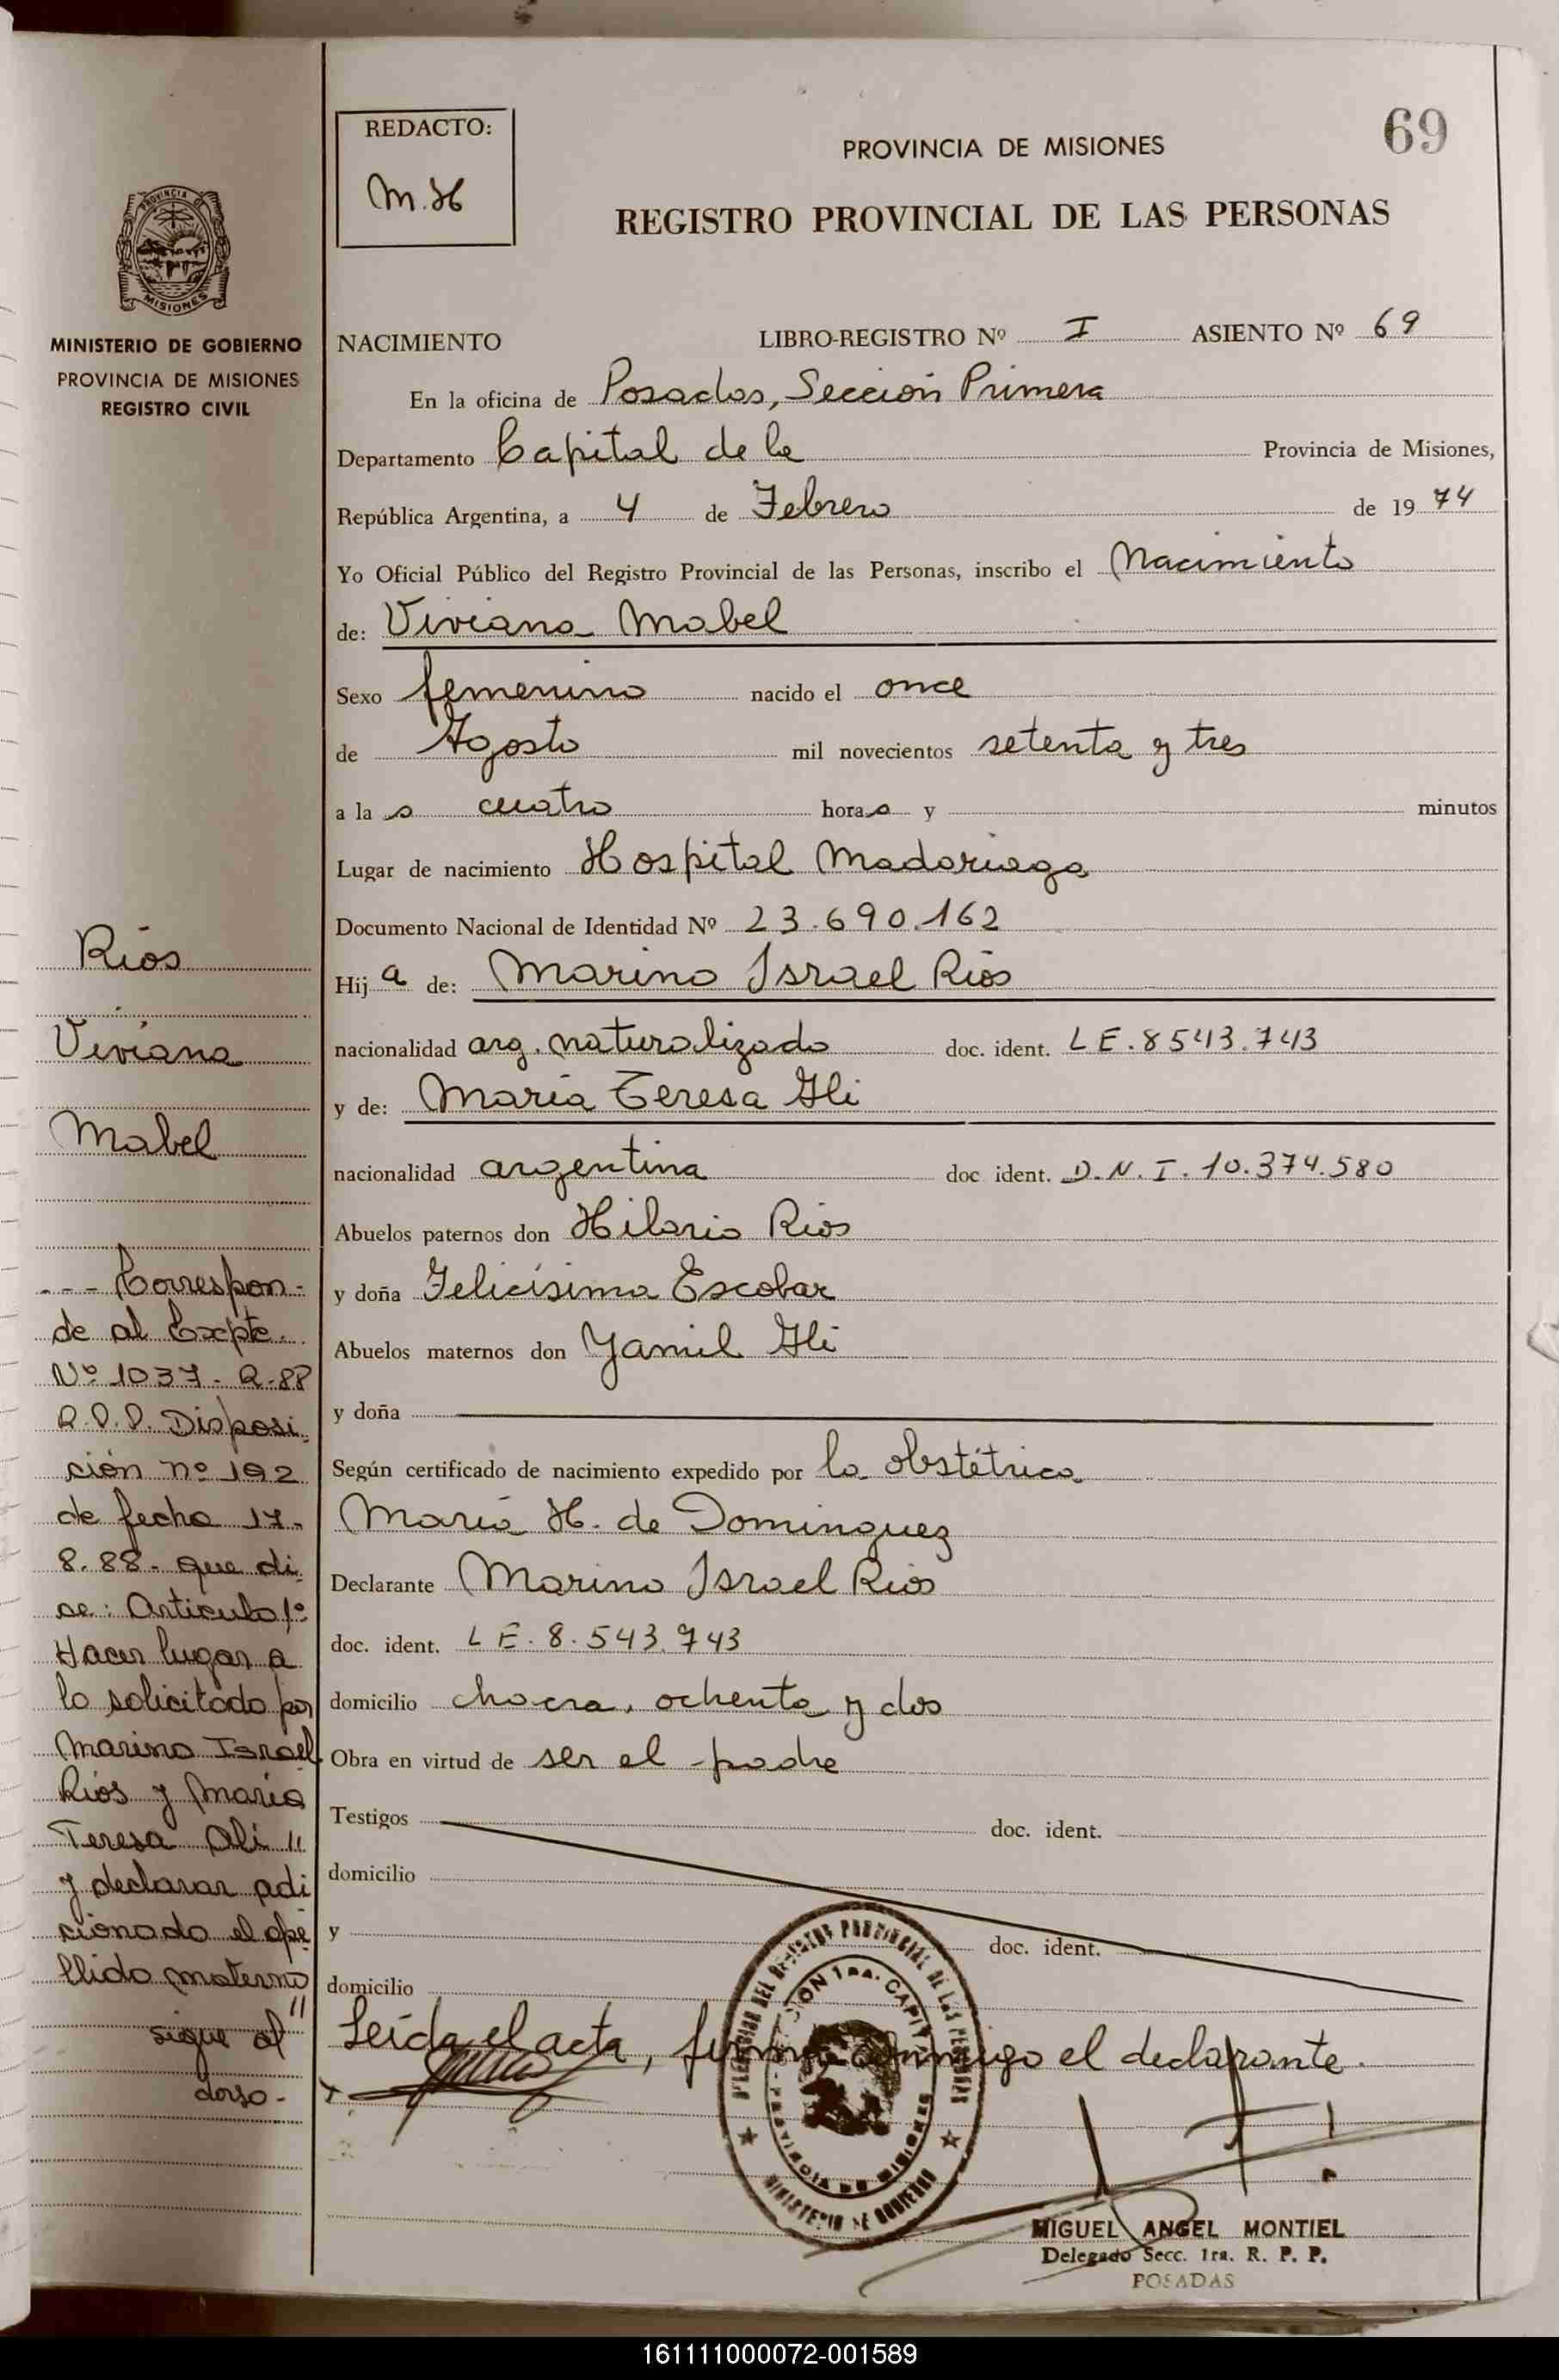 69
REDACTO:
M.H
PROVINCIA DE MISIONES
REGISTRO PROVINCIAL DE LAS PERSONAS
PROVINCIA DE
MISIONES
MINISTERIO DE GOBIERNO
PROVINCIA DE MISIONES
REGISTRO CIVIL
NACIMIENTO LIBRO-REGISTRO Nº I ASIENTO Nº 69
En la oficina de Posadas, Sección Primera
Departamento Capital de la Provincia de Misiones,
República Argentina, a 4 de Febrero de 1974
Yo Oficial Público del Registro Provincial de las Personas, inscribo el Nacimiento
de: Viviana Mabel
Sexo femenino nacido el once
de Agosto mil novecientos setenta y tres
a la s cuatro horas y minutos
Lugar de nacimiento Hospital Madariaga
Documento Nacional de Identidad Nº 23.690.162
Hija de: Marino Israel Ríos
nacionalidad arg. naturalizado doc. ident. LE.8543.743
y de: María Teresa Ali
nacionalidad argentina doc ident. D.N.I. 10.374.580
Abuelos paternos don Hilario Ríos
y doña Felicísima Escobar
Abuelos maternos don Yamil Ali
y doña
Según certificado de nacimiento expedido por la obstétrica
María H. de Dominguez
Declarante Marino Israel Ríos
doc. ident. LE.8.543.743
domicilio chacra, ochenta y dos
Obra en virtud de ser el padre
Testigos doc. ident.
domicilio
y doc. ident.
domicilio
Leída el acta, firma conmigo el declarante.
Ríos
Viviana
Mabel
--- Correspon-
de al Expte.
Nº 1037-R-88
R.P.P. Disposi-
ción nº 192
de fecha 17-
8.88- que di-
ce: Artículo 1º
Hacer lugar a
lo solicitado por
Marino Israel
Ríos y María
Teresa Ali "
y declarar adi
cionado el ape
llido materno
sigue al "
dorso-
DELEGACION DEL REGISTRO PROVINCIAL DE LAS PERSONAS
MINISTERIO DE GOBIERNO
PROVINCIA DE MISIONES
MIGUEL ANGEL MONTIEL
Delegado Secc. 1ra. R. P. P.
POSADAS
161111000072-001589